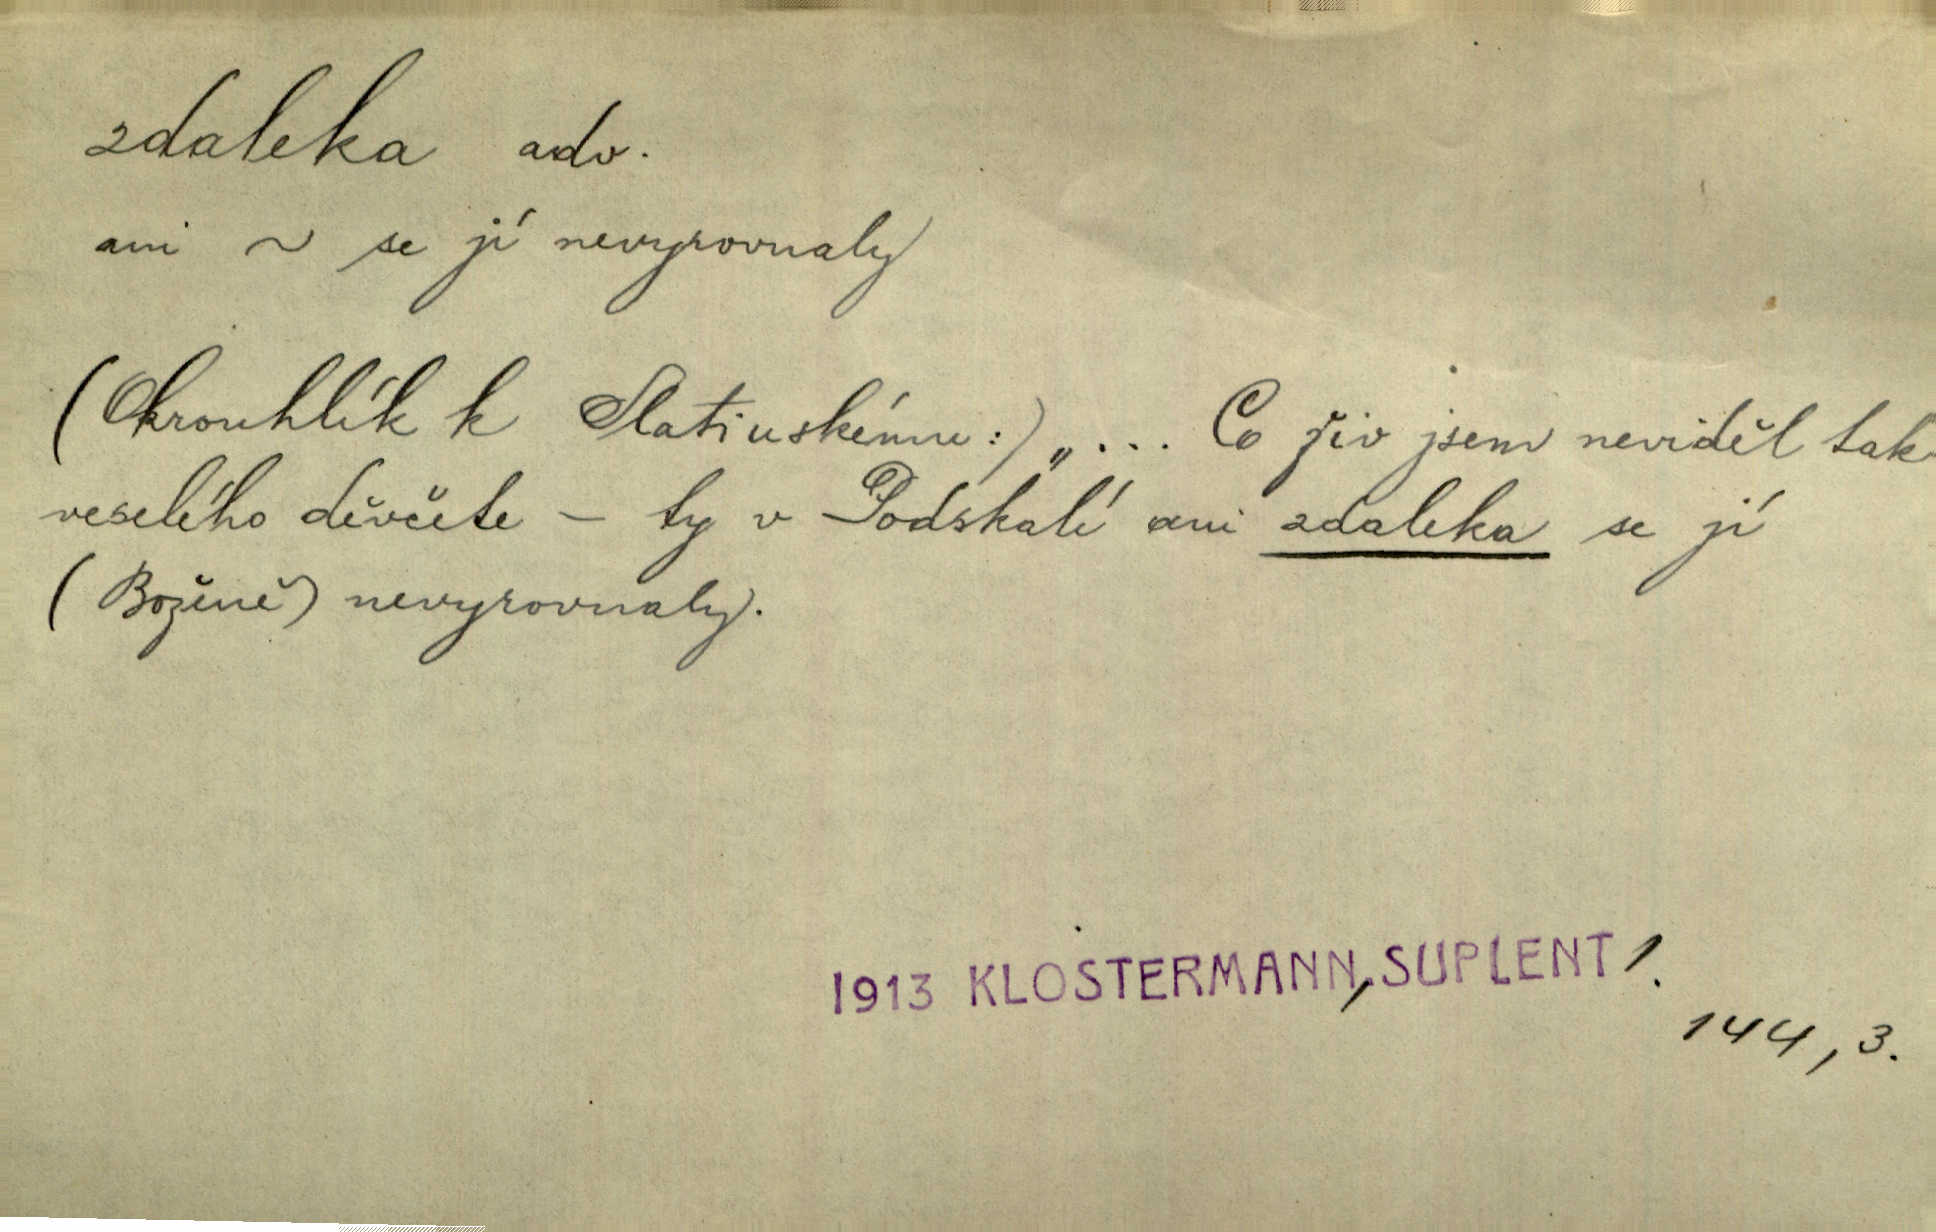 zdaleka adv.
ani ~ se jí nevyrovnaly
(Okrouhlík k Slatinskému:) „... Co živ jsem neviděl tak
veselého děvčete – ty v Podskalí ani zdaleka se jí
(Boženě) nevyrovnaly.
1913 KLOSTERMANN, SUPLENT 1.
144, 3.